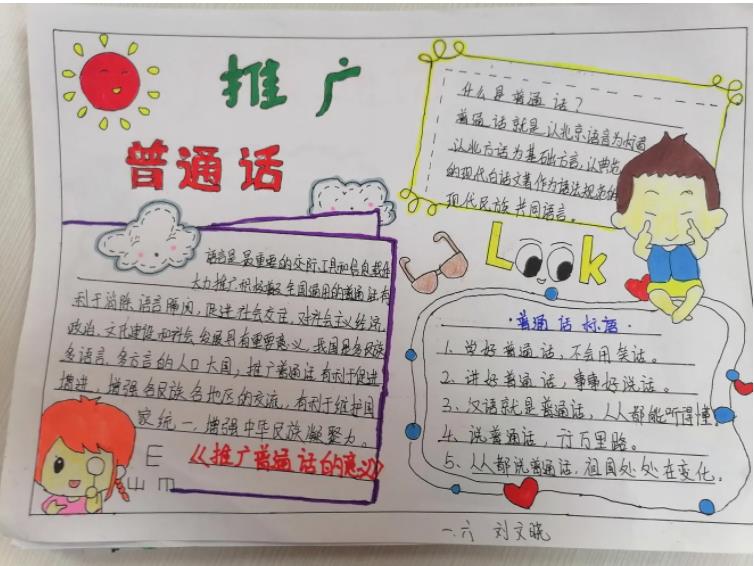 推广
普通话
什么是普通话？
普通话就是以北京语音为标音
认北方话为基础方言,认典范
的现代白话文著作为语法规范的
现代民族共同语言。
Look
语言是最重要的交际工具和信息载体
大力推广积极普及全国通用的普通话有
利于消除语言隔阂，促进社会交往，对社会主义经济
政治、文化建设和社会发展具有重要意义，我国是多民族
多语言、多方言的人口大国，推广普通话有利于促进
增进，增强各民族各地区的交流，有利于维护国
家统一，增强中华民族凝聚力。
《推广普通话的意义》
E
山 m
普通话标语
1、学好普通话，不会用笑话。
2、讲好普通话，事事好说话。
3、汉语就是普通话，人人都能听得懂。
4、说普通话，行万里路。
5、人人都说普通话，祖国处处在变化。
一.六 刘文晓